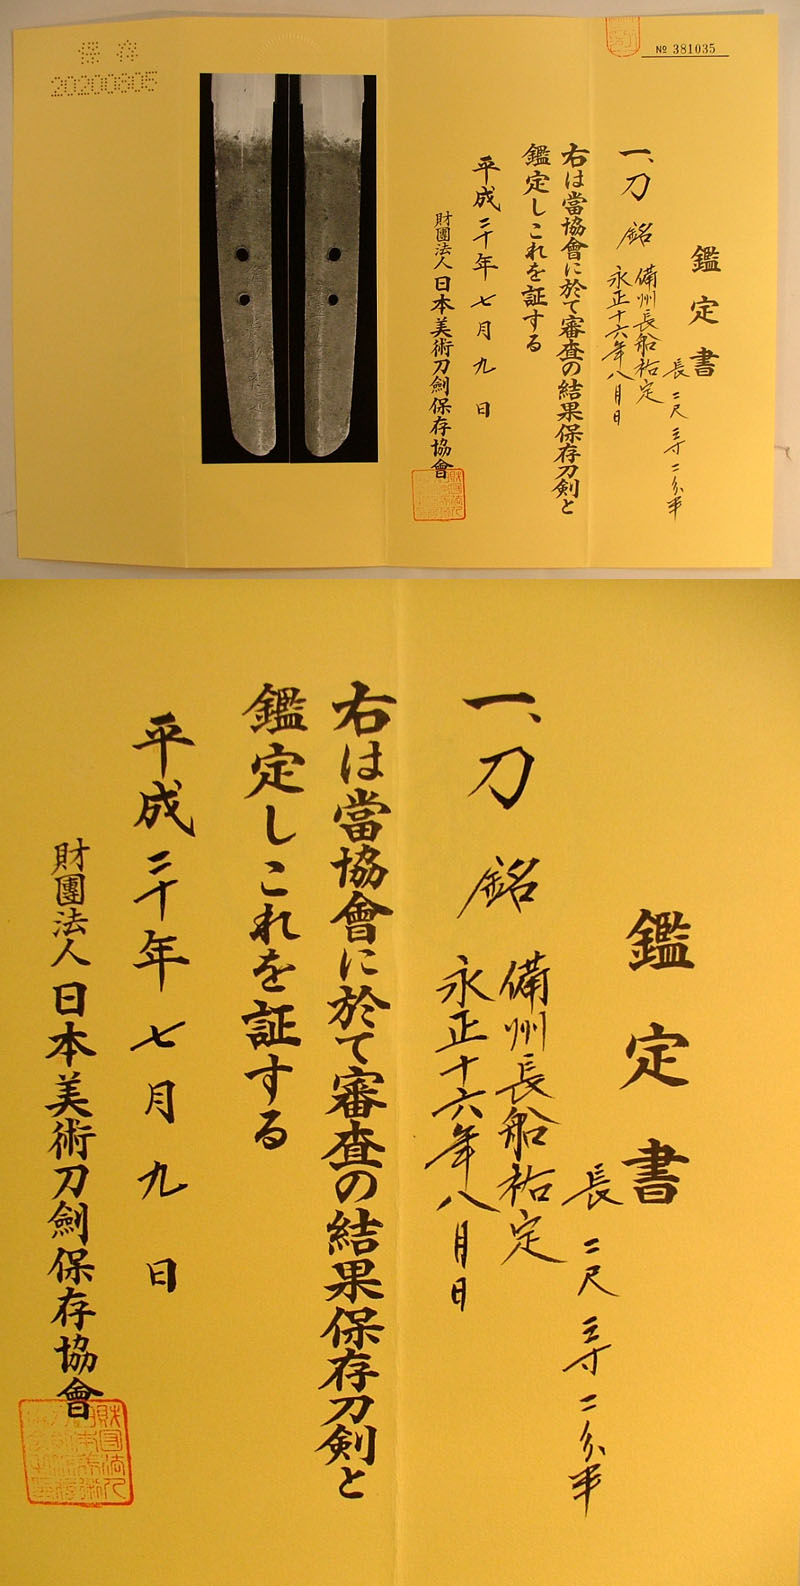 № 381035
鑑定書
長二尺三寸二分半
一、刀 銘 備州長船祐定
永正十六年八月日
右は當協會に於て審査の結果保存刀剣と
鑑定しこれを証する
平成二十年七月九日
財團法人日本美術刀劍保存協會
保存
20200805
鑑定書
長二尺三寸二分半
一、刀 銘 備州長船祐定
永正十六年八月日
右は當協會に於て審査の結果保存刀剣と
鑑定しこれを証する
平成二十年七月九日
財團法人日本美術刀劍保存協會